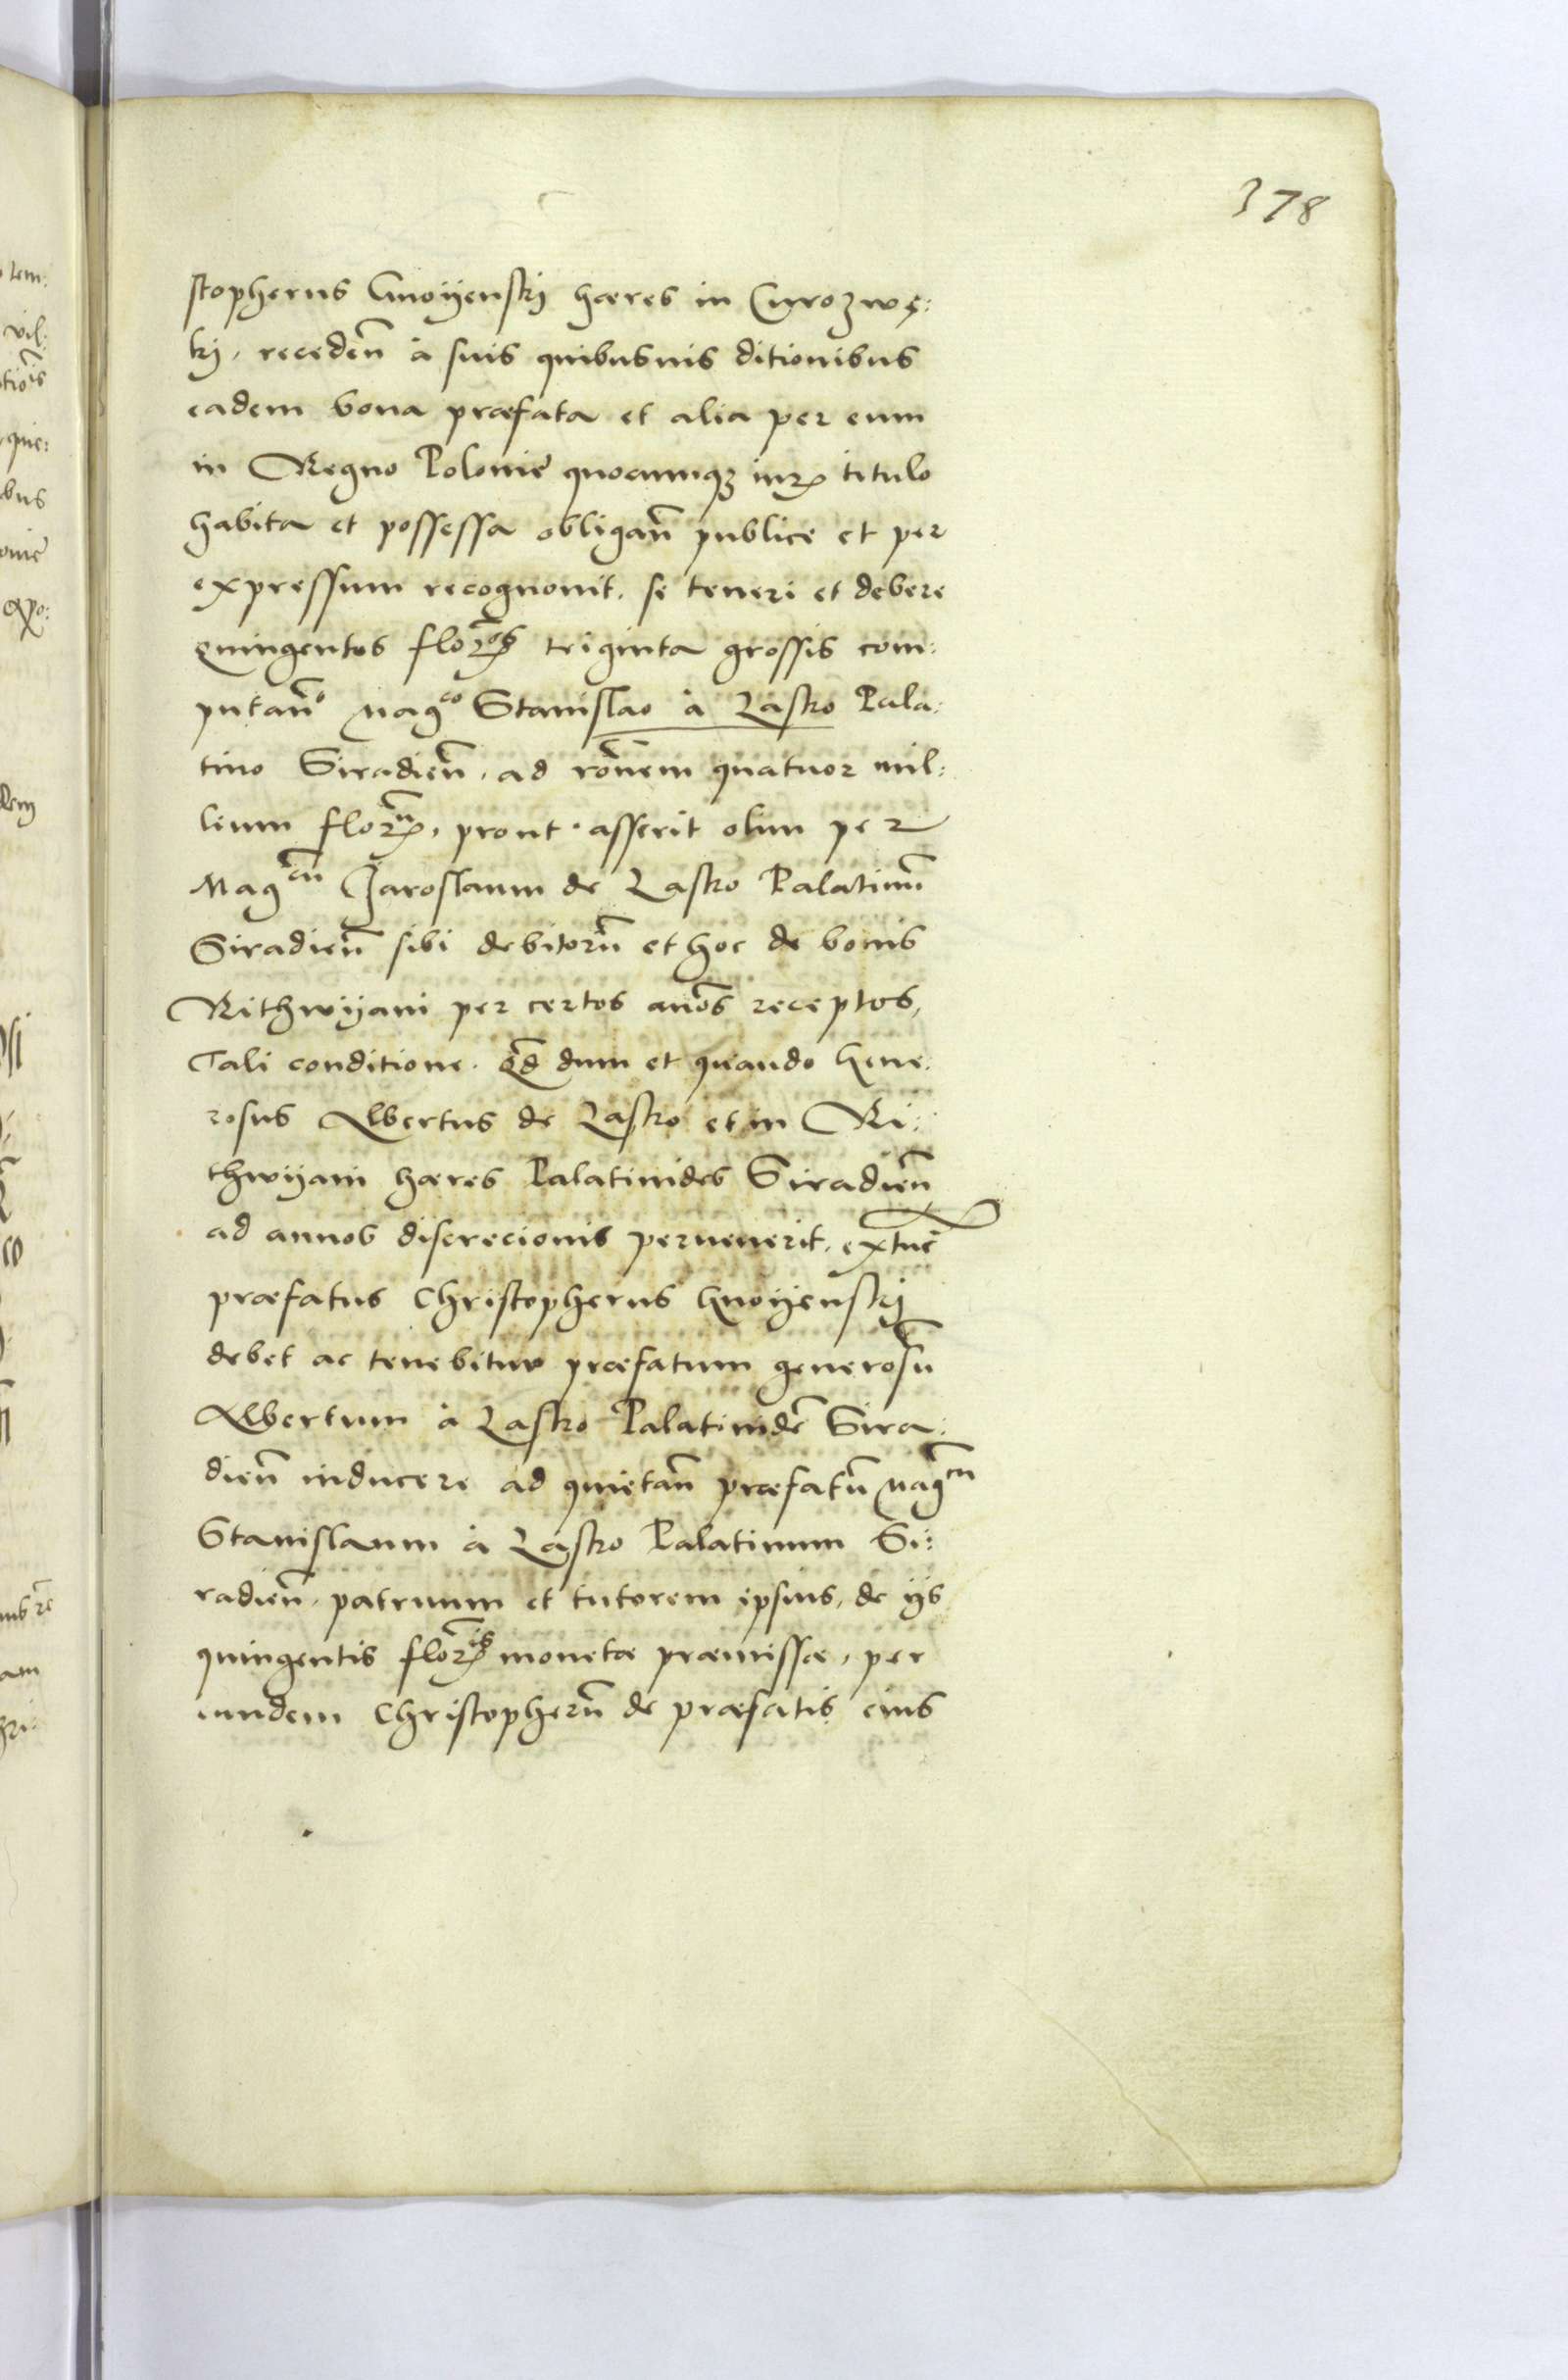 378
stopherus Gnoÿenskÿ hæres in Curozwę:
kÿ, recedeñ à suis quibusuis ditionibus
eadem bona præfata et alia per eum
in Regno Polonie quocumqꝫ iurꝭ titulo
habita et possessa obligañ publice et per
expressum recognouit. se teneri et debere
quingentos florꝭos triginta grossis com:
putañᵒ Magᶜᵒ Stanislao à Lasko Pala:
tino Siradieñ. ad rõnem quatuor mil:
lium florꝭᵐ, prout asserit olim per
Magᶜᵘ̃ Jaroslaum de Lasko Palatinũ
Siradieñ sibi debitorũ et hoc de bonis
Rithwÿani per certos anõs receptos,
Tali conditione. Qđ dum et quando Gene:
rosus Albertus de Lasko et in Ri:
thwÿani hæres Palatinides Siradieñ
ad annos discrecionis peruenerit, extũc
præfatus Christopherus Gnoÿenskÿ
debet ac tenebitur præfatum generosũ
Albertum à Lasko Palatinidẽ Sira:
dieñ inducere ad quietañ præfatũ Magᶜᵘ̃
Stanislaum à Lasko Palatinum Si:
radieñ, patruum et tutorem ipsius, de ÿs
quingentis florꝭⁱˢ monetæ præmissæ, per
eundem Christopherũ de præfatis eius